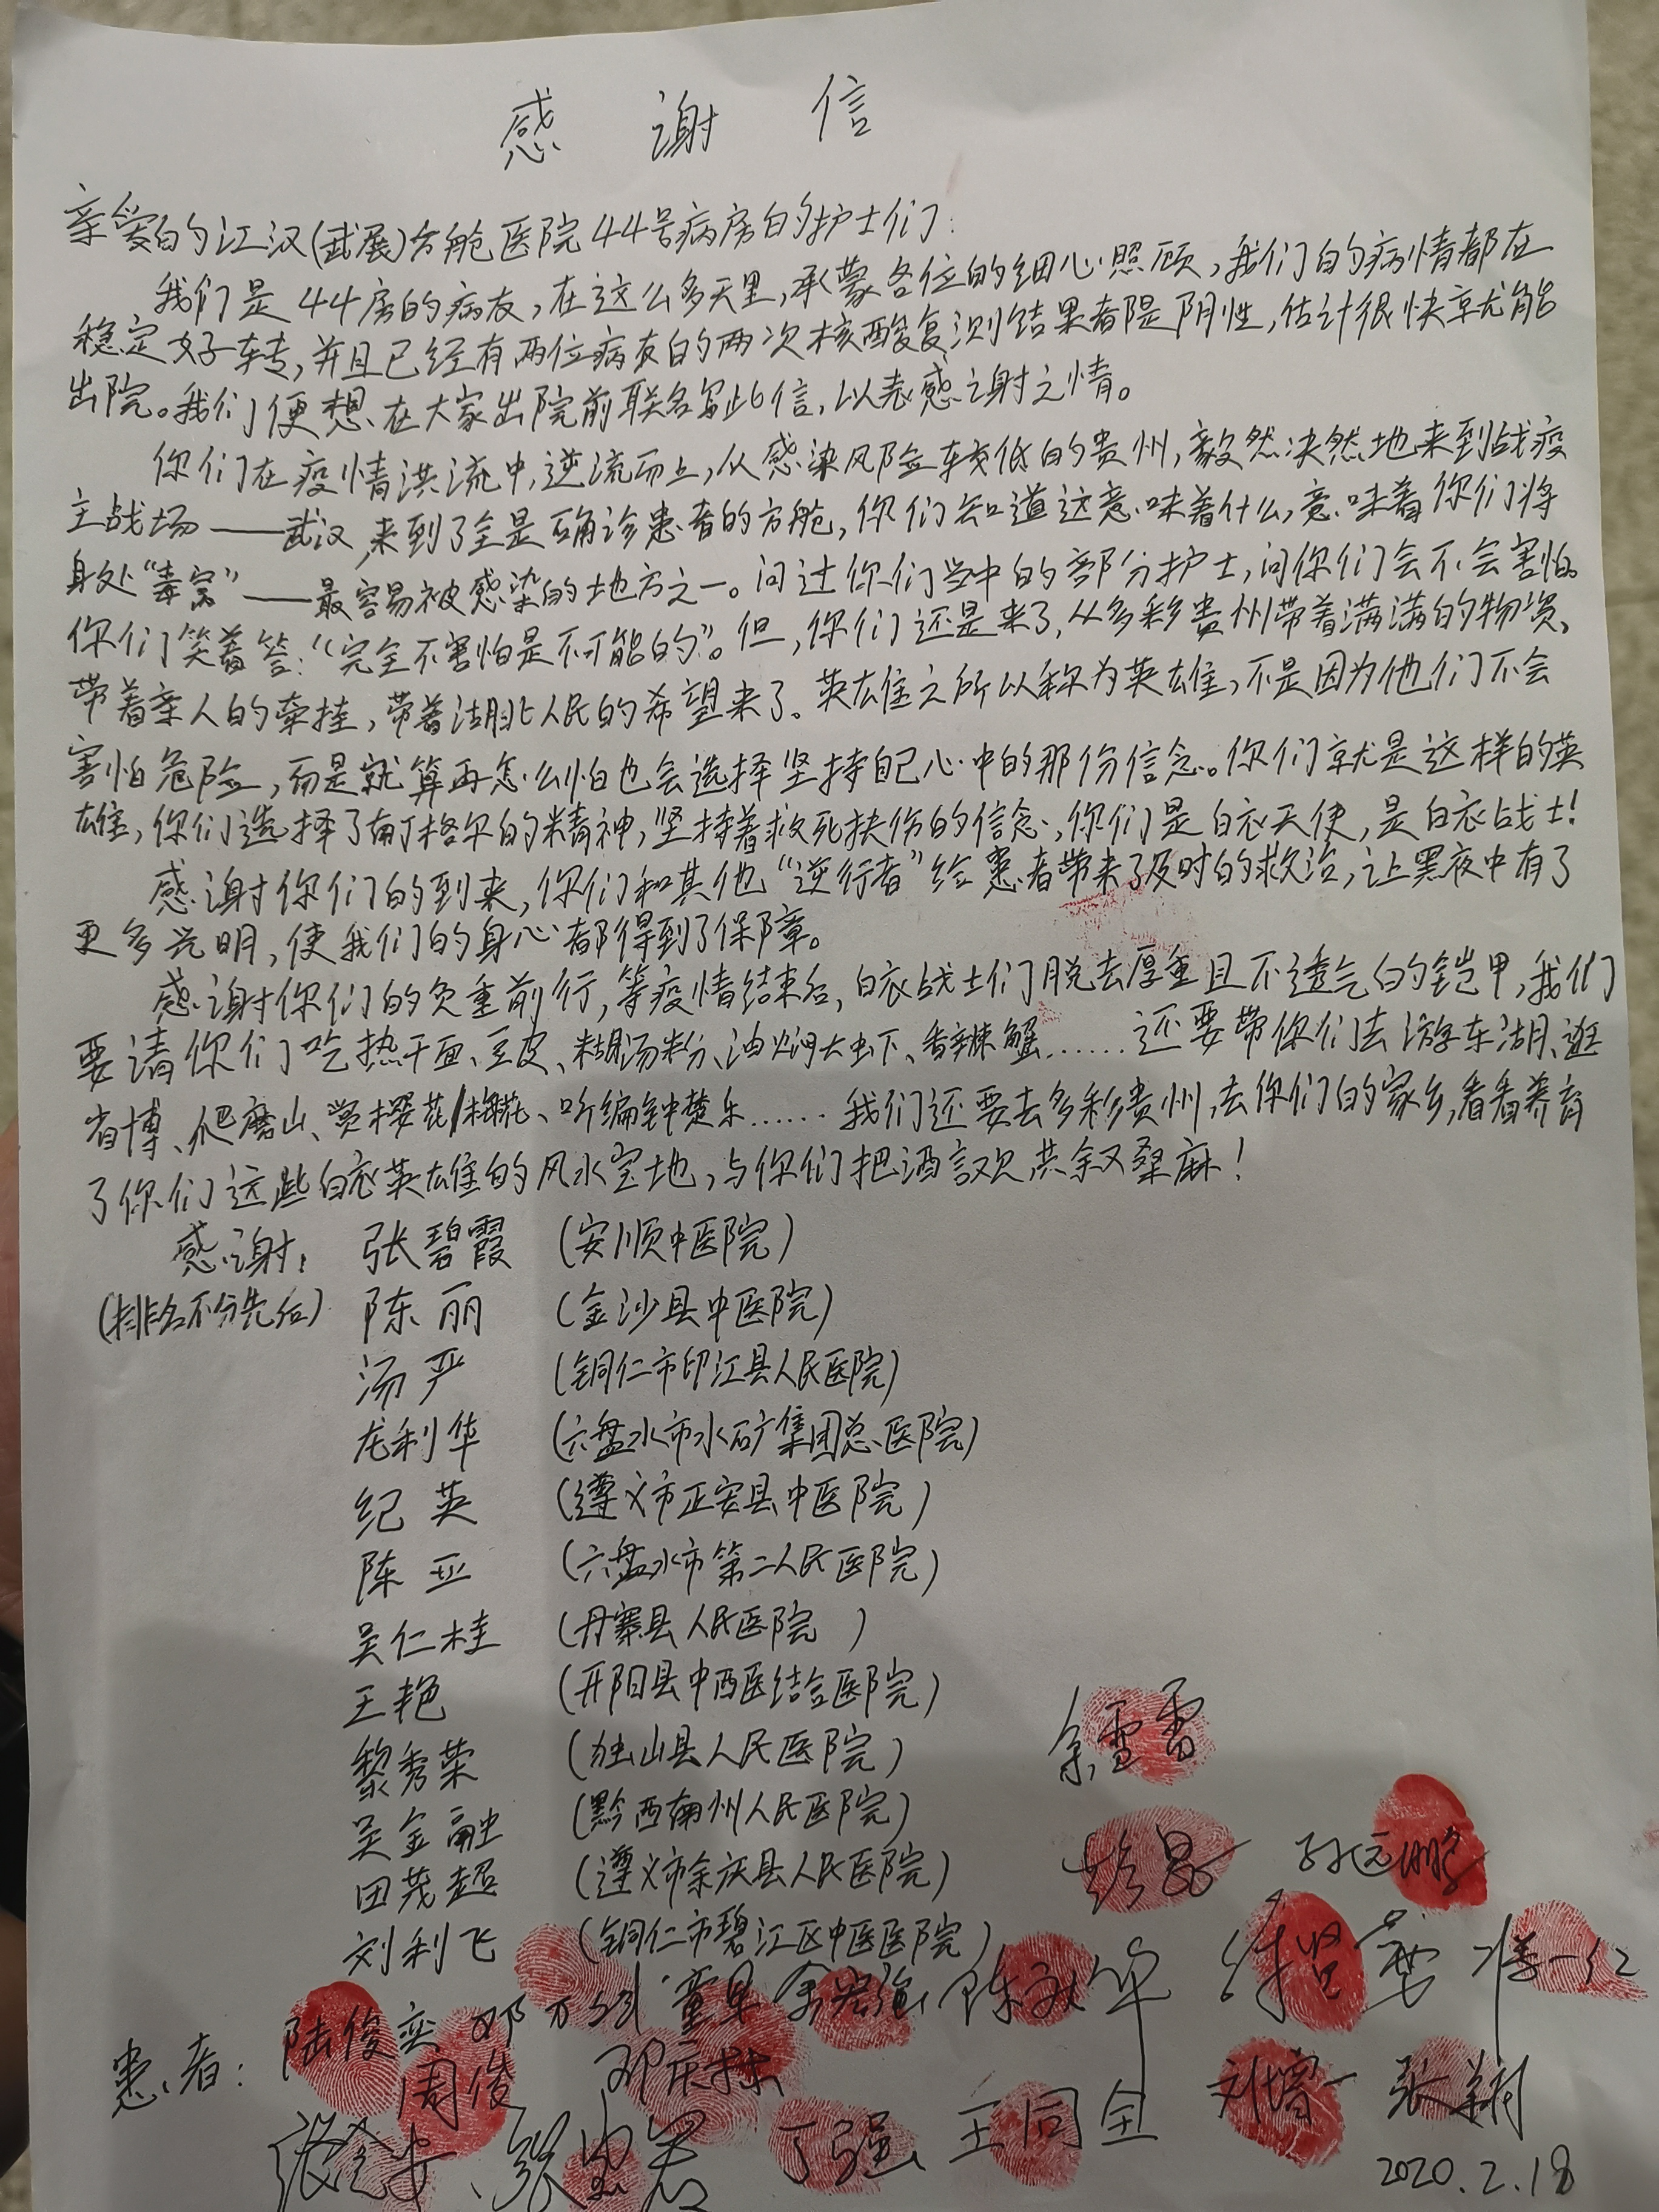 感谢信
亲爱的江汉(武展)方舱医院44号病房的护士们:
我们是44房的病友,在这么多天里,承蒙各位的细心照顾,我们的病情都在
稳定好转,并且已经有两位病友的两次核酸复测结果都是阴性,估计很快就能
出院。我们便想在大家出院前联名写此信,以表感谢之情。
你们在疫情洪流中,逆流而上,从感染风险较低的贵州,毅然决然地来到战疫
主战场——武汉,来到了全是确诊患者的方舱,你们知道这意味着什么,意味着你们将
身处“毒窝”——最容易被感染的地方之一。问过你们当中的部分护士,问你们会不会害怕。
你们笑着答:“完全不害怕是不可能的”。但,你们还是来了,从多彩贵州带着满满的物资、
带着亲人的牵挂,带着湖北人民的希望来了。英雄之所以称为英雄,不是因为他们不会
害怕危险,而是就算再怎么怕也会选择坚持自己心中的那份信念。你们就是这样的英
雄,你们选择了南丁格尔的精神,坚持着救死扶伤的信念,你们是白衣天使,是白衣战士!
感谢你们的到来,你们和其他“逆行者”给患者带来了及时的救治,让黑夜中有了
更多光明,使我们的身心都得到了保障。
感谢你们的负重前行,等疫情结束后,白衣战士们脱去厚重且不透气的铠甲,我们
要请你们吃热干面、豆皮、糊汤粉、油焖大虾、香辣蟹……还要带你们去游东湖、逛
省博、爬磨山、赏樱花/梅花、听编钟楚乐……我们还要去多彩贵州,去你们的家乡,看看养育
了你们这些白衣英雄的风水宝地,与你们把酒言欢共叙桑麻!
感谢: 张碧霞 (安顺中医院)
(排名不分先后) 陈丽 (金沙县中医院)
汤严 (铜仁市印江县人民医院)
龙利华 (六盘水市水矿集团总医院)
纪英 (遵义市正安县中医院)
陈亚 (六盘水市第二人民医院)
吴仁桂 (丹寨县人民医院)
王艳 (开阳县中西医结合医院)
黎秀荣 (独山县人民医院)
吴金融 (黔西南州人民医院)
田茂超 (遵义市余庆县人民医院)
刘利飞 (铜仁市碧江区中医医院)
余雪雷
孙远鹏
患者: 陆俊奕 邓万 童早 余宏强 陈秋华
周俊 邓庆 刘增一 张娟
丁强 王同全
2020.2.18